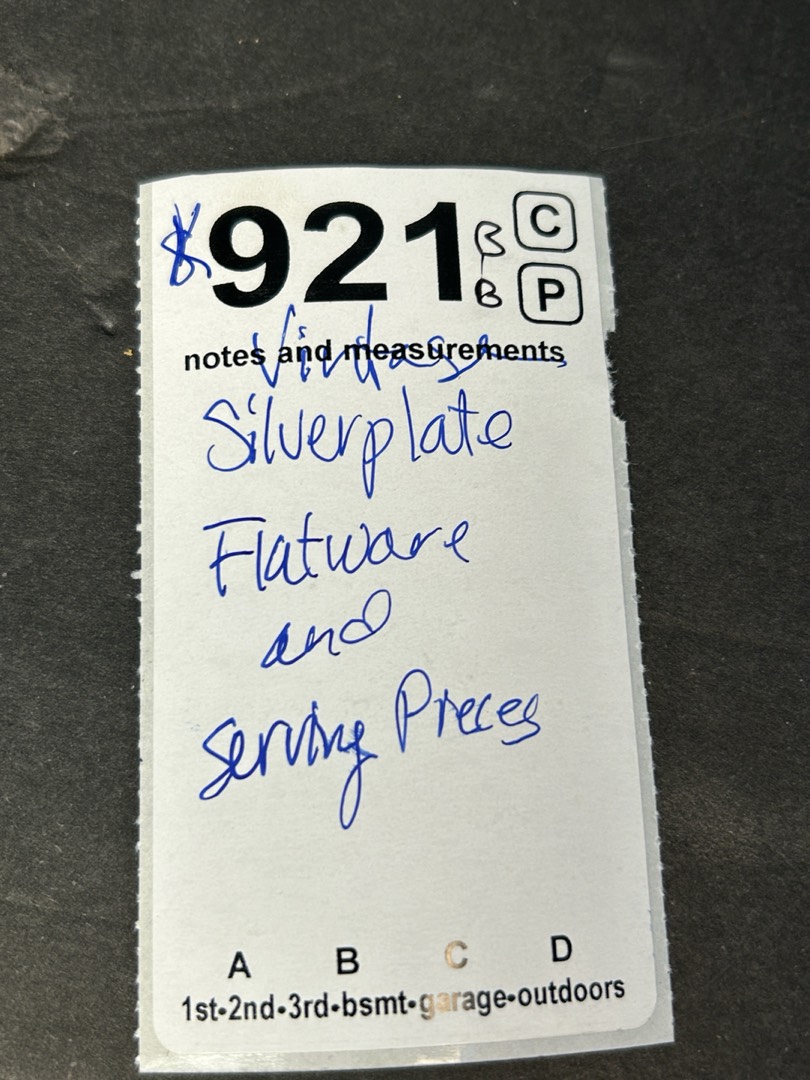 921 B C
B P
notes and measurements
Silverplate
Flatware
and
Serving Pieces
A B C D
1st-2nd-3rd-bsmt-garage-outdoors